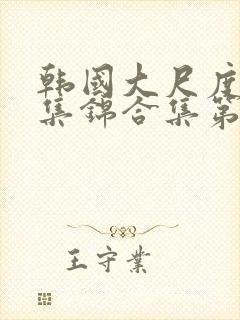 韩國大尺度
集錦合集第
王守業